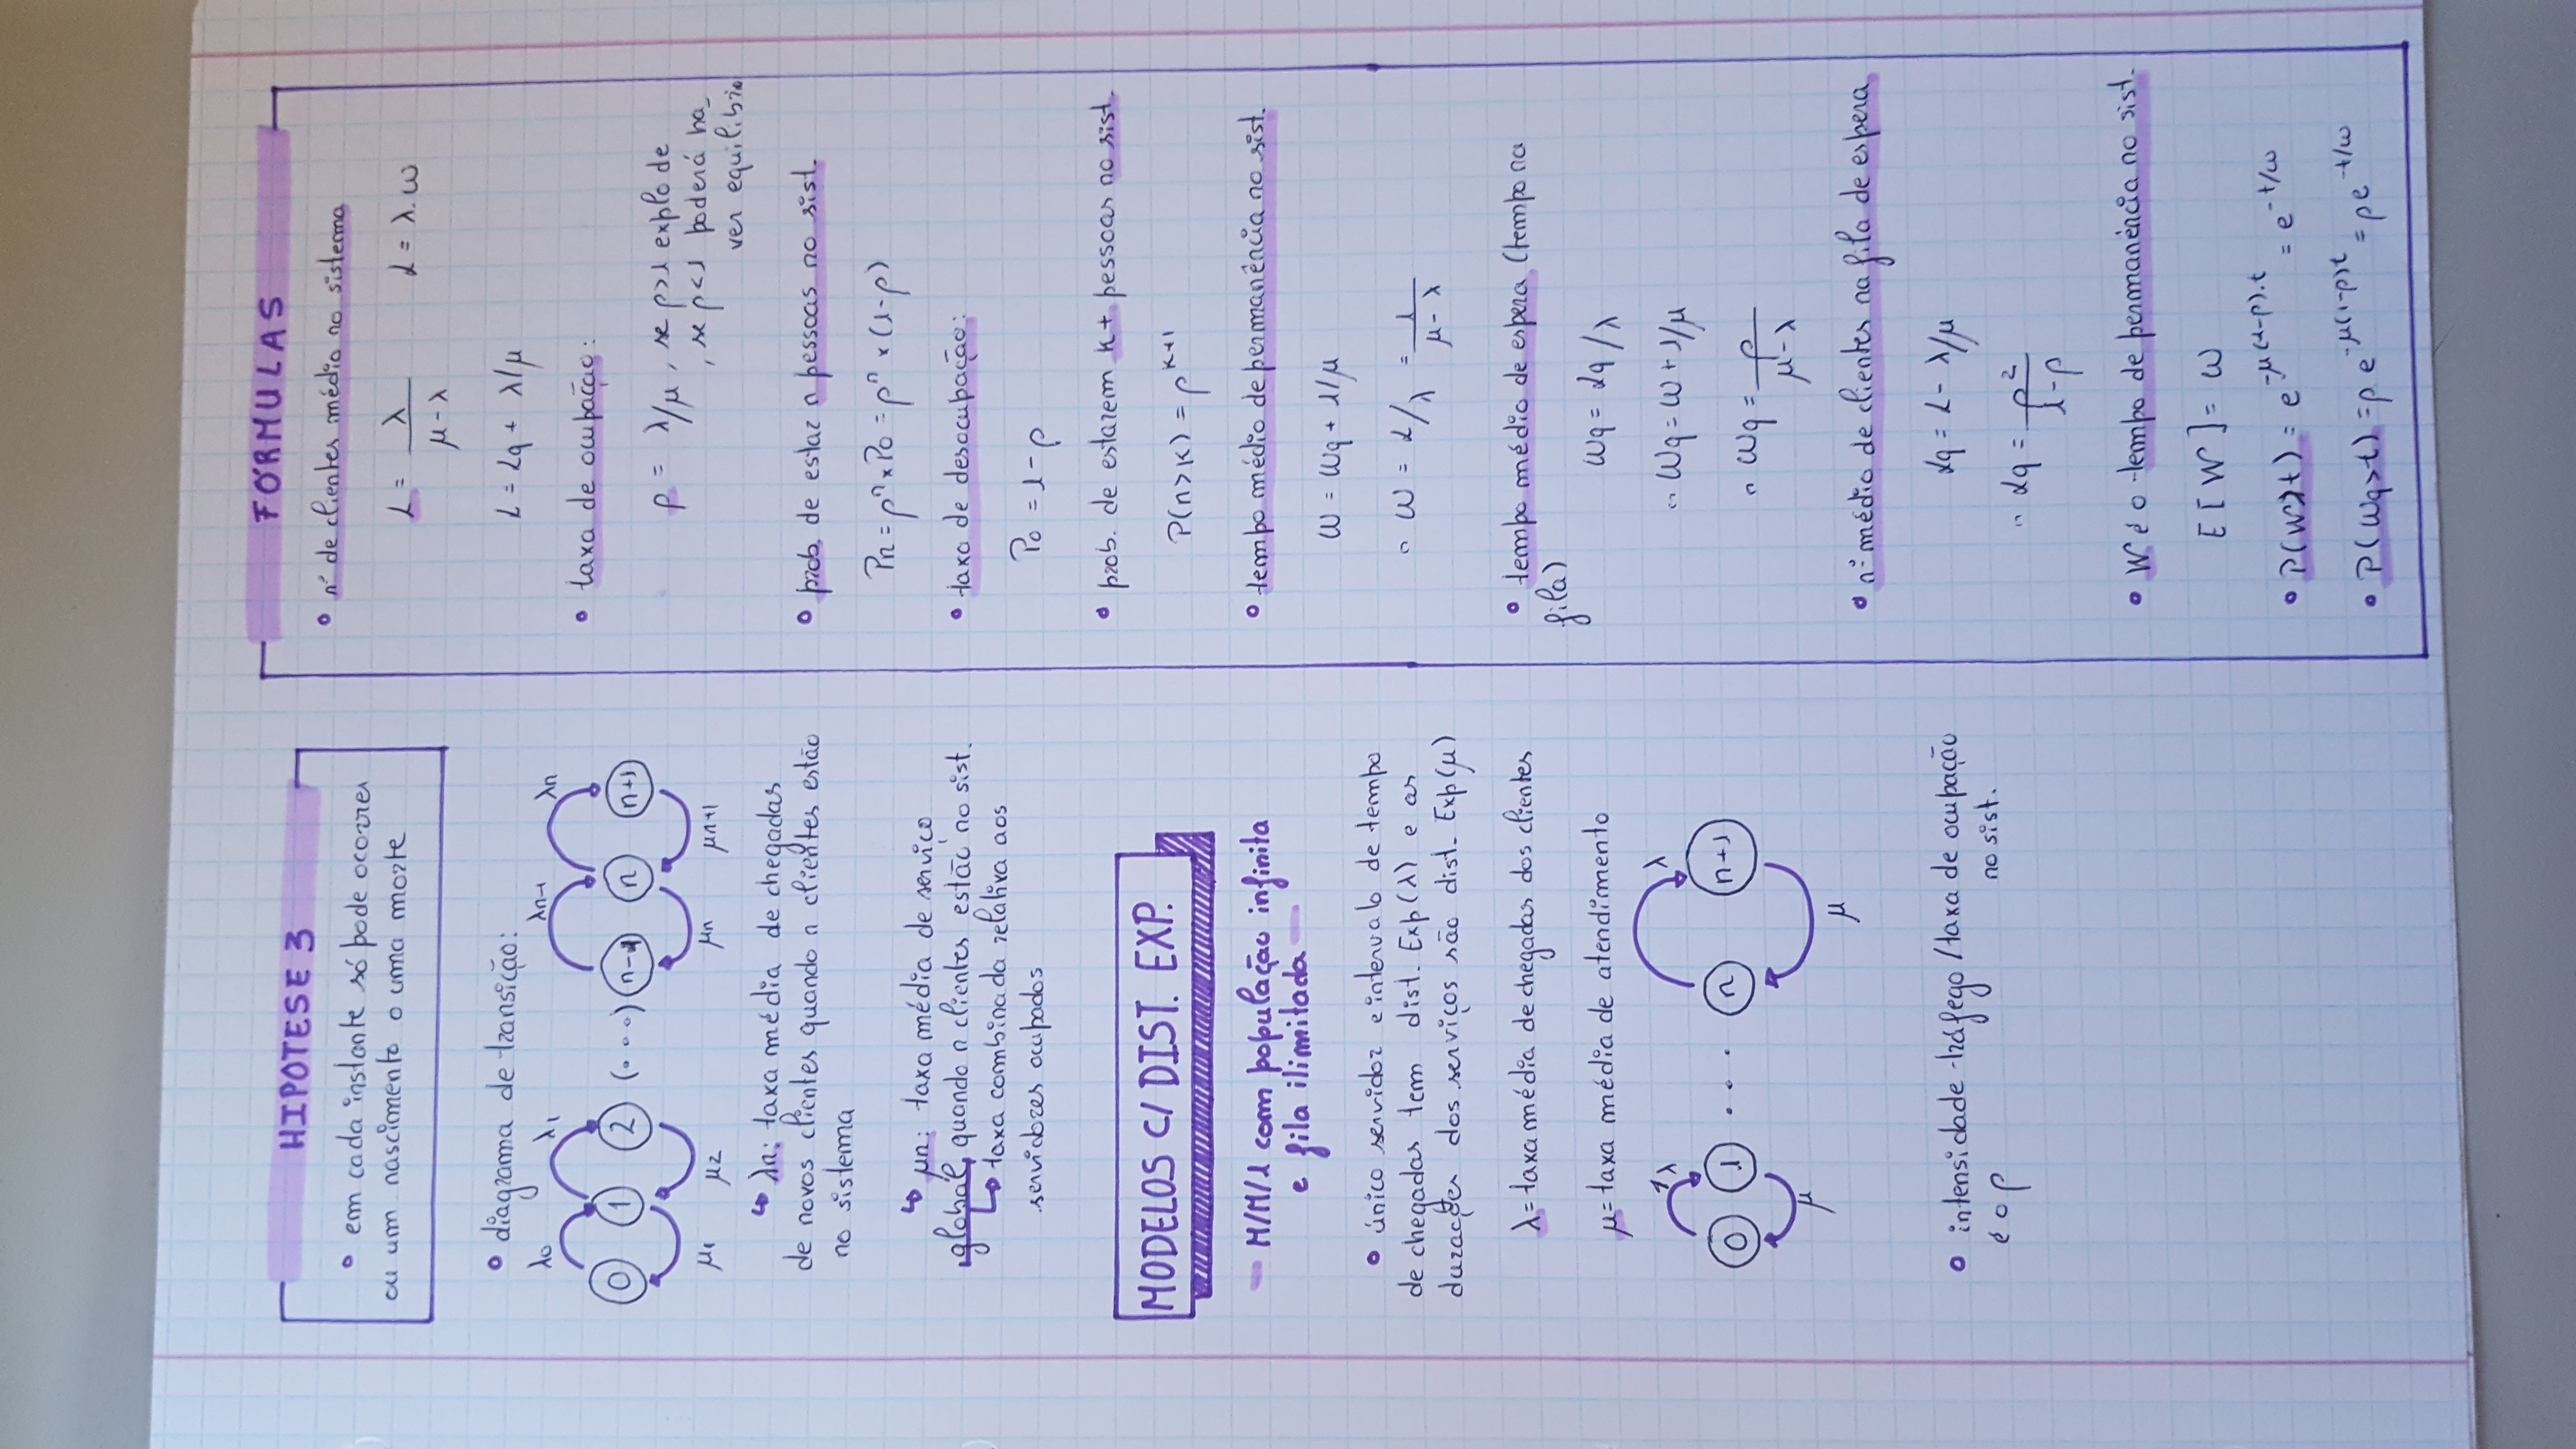 HIPOTESE 3
• em cada instante só pode ocorrer
ou um nascimento o uma morte
• diagrama de transição:
λ0 λ1 λn-1 λn
0 1 2 (...) n-1 n n+1
μ1 μ2 μn μn+1
↳ λn: taxa média de chegadas
de novos clientes quando n clientes estão
no sistema
↳ μn: taxa média de serviço
global, quando n clientes estão no sist.
↳ taxa combinada relativa aos
servidores ocupados
MODELOS C/ DIST. EXP.
— M/M/1 com população infinita
e fila ilimitada —
• único servidor e intervalo de tempo
de chegadas tem dist. Exp(λ) e as
durações dos serviços são dist. Exp(μ)
λ = taxa média de chegadas dos clientes
μ = taxa média de atendimento
λ λ
0 1 .... n n+1
μ μ
• intensidade tráfego / taxa de ocupação
é o ρ no sist.
FÓRMULAS
• nº de clientes médio no sistema
L = λ / (μ - λ) L = λ.W
L = Lq + λ/μ
• taxa de ocupação:
ρ = λ/μ, se ρ>1 explode
, se ρ<1 poderá ha_
ver equilíbrio
• prob. de estar n pessoas no sist.
Pn = ρ^n × P0 = ρ^n × (1-ρ)
• taxa de desocupação:
P0 = 1 - ρ
• prob. de estarem k+ pessoas no sist.
P(n>k) = ρ^k+1
• tempo médio de permanência no sist.
W = Wq + 1/μ
∴ W = L/λ = 1 / (μ - λ)
• tempo médio de espera (tempo na
fila)
Wq = Lq/λ
∴ Wq = W + 1/μ
∴ Wq = ρ / (μ - λ)
• nº médio de clientes na fila de espera
Lq = L - λ/μ
∴ Lq = ρ^2 / (1 - ρ)
• W é o tempo de permanência no sist.
E[W] = W
• P(W>t) = e^-μ(1-ρ).t = e^-t/W
• P(Wq>t) = ρe^-μ(1-ρ)t = ρe^-t/W